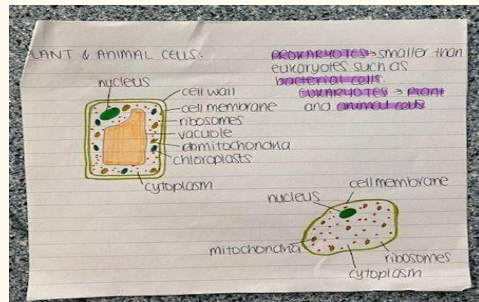 PLANT & ANIMAL CELLS:
PROKARYOTES → smaller than
eukaryotes such as
bacterial cells.
EUKARYOTES → Plant
and animal cells
nucleus
cell wall
cell membrane
ribosomes
vacuole
chloroplasts
cytoplasm
cell membrane
nucleus
mitochondria
ribosomes
cytoplasm